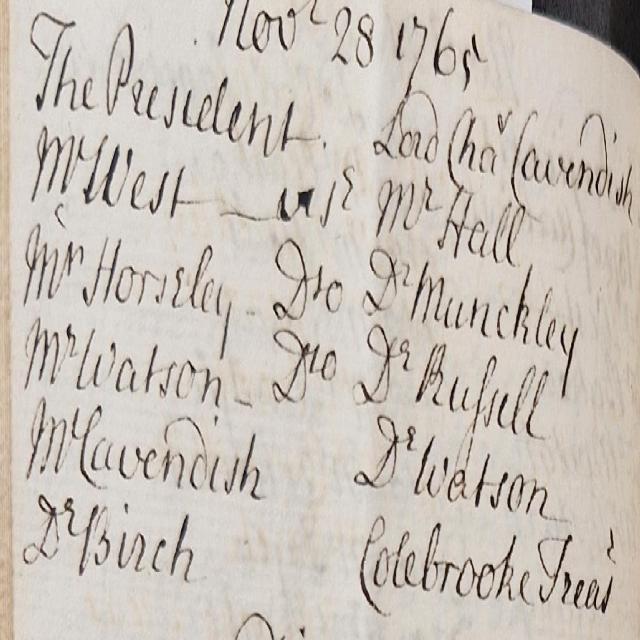 Novr 28 1765
The President. Lord Chas Cavendish
Mr West Mr Hall
Mr Horseley Dro Dr Munckley
Mr Watson Dro Dr Russell
Mr Cavendish Dr Watson
Dr Birch Colebrooke Treas